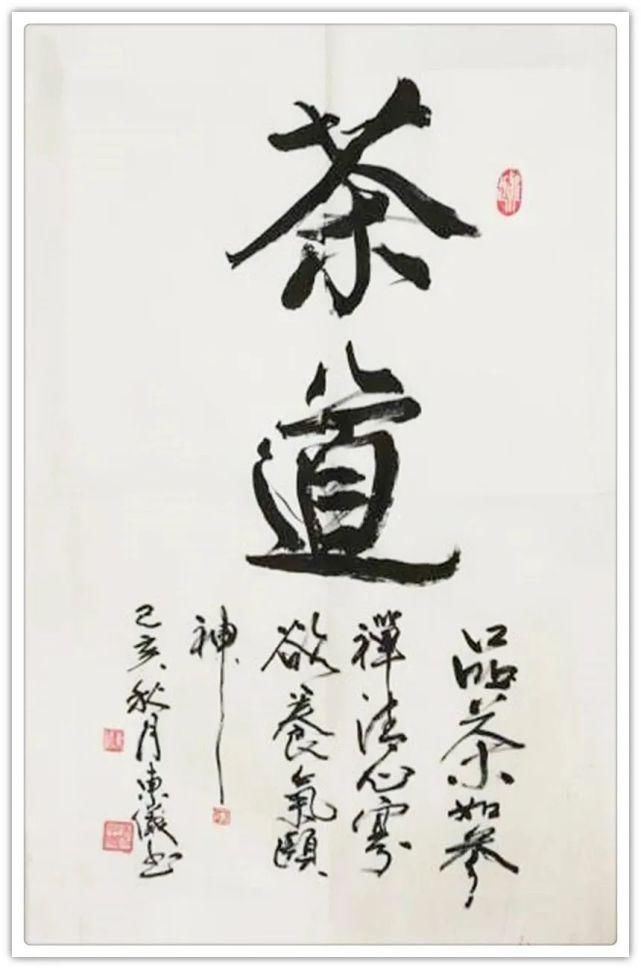 茶道
品茶如參
禪清心寡
欲養氣頤
神
己亥秋月東儀書